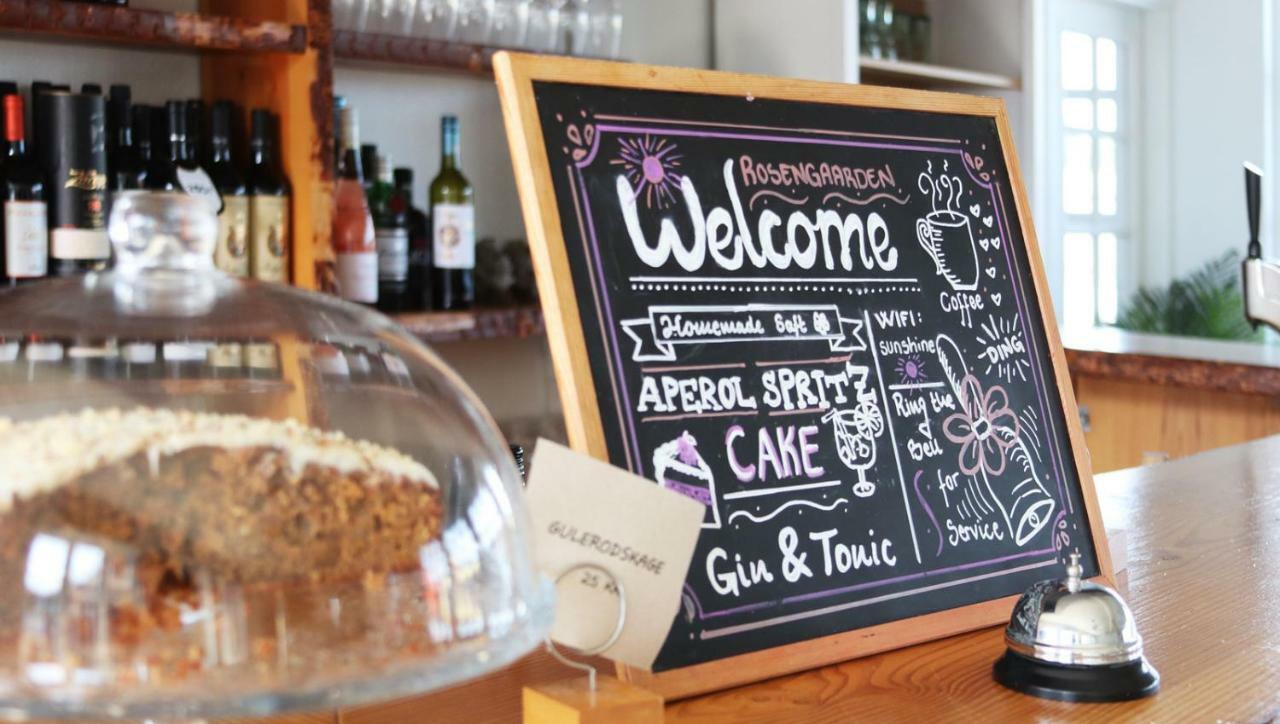 ROSENGAARDEN
Welcome
Coffee
Homemade Saft
WIFI:
sunshine
DING
APEROL SPRITZ
Ring the
Bell
for
Service
CAKE
Gin & Tonic
GULERODSKAGE
25 KR